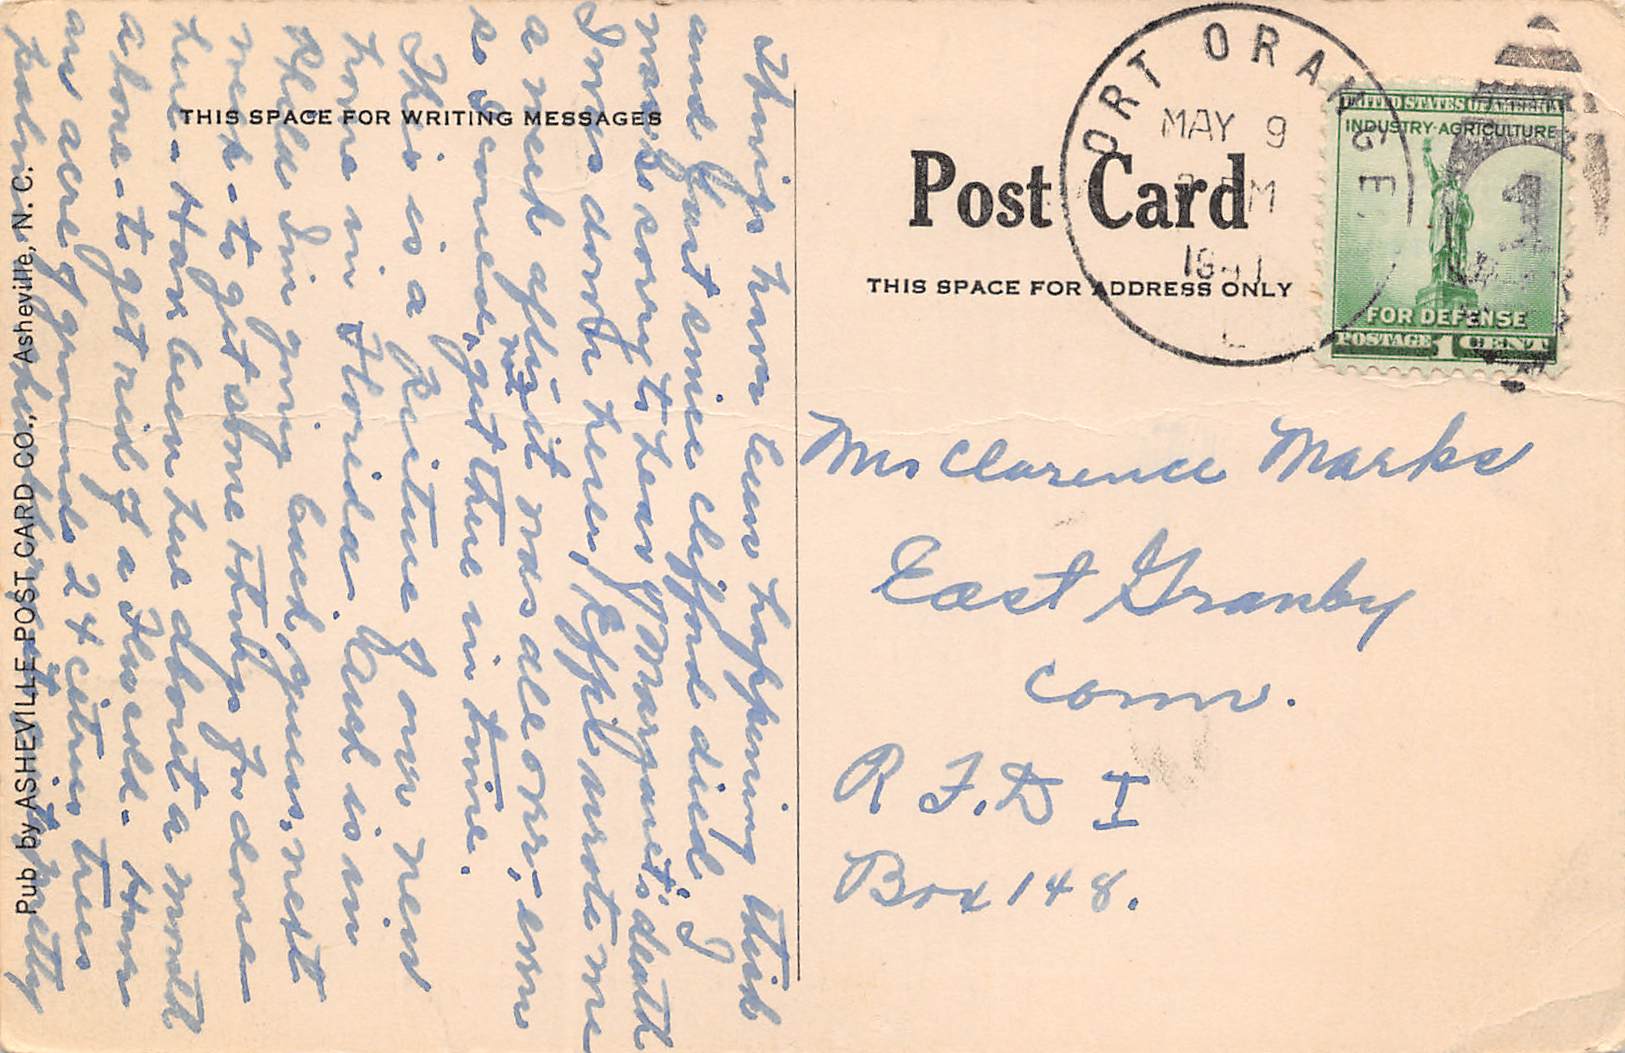 THIS SPACE FOR WRITING MESSAGES
Things have been happening thick
and fast since Clifford died. I
was so sorry to hear of Margaret's death
I was down here, Effie wrote me
a week after it was all over, even
so I couldn't get there in time.
This is a picture of our new
home in Florida. Cash is in
Phila I'm going back, guess, next
week - to get some things for done
here - Have been here about a month
alone - to get rid of a Flu cold - Have
an acre of ground 24 citrus trees
palms
pretty
Pub by ASHEVILLE POST CARD CO., Asheville, N. C.
Post Card
THIS SPACE FOR ADDRESS ONLY
ORT ORANGE
MAY 9
PM
1941
UNITED STATES OF AMERICA
INDUSTRY·AGRICULTURE
1
FOR DEFENSE
POSTAGE 1 CENT
Mrs Clarence Marks
East Granby
Conn.
R F.D I
Box 148.